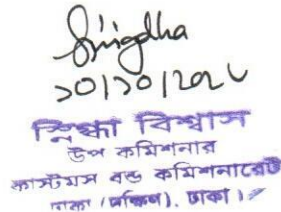 Snigdha
২০/১০/২০২৫
স্নিগ্ধা বিশ্বাস
উপ কমিশনার
কাস্টমস বন্ড কমিশনারেট
ঢাকা (দক্ষিণ), ঢাকা।